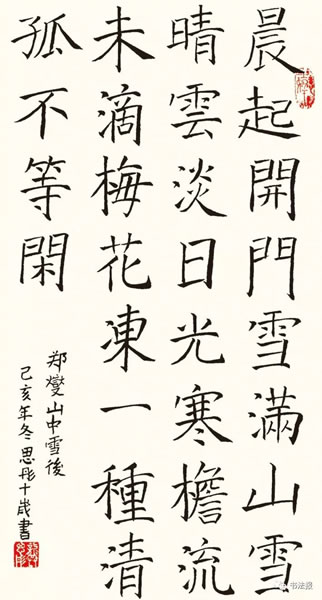 晨起開門雪滿山雪
晴雲淡日光寒檐流
未滴梅花凍一種清
孤不等閑
郑燮山中雪後
己亥年冬思彤十歲書
书法报